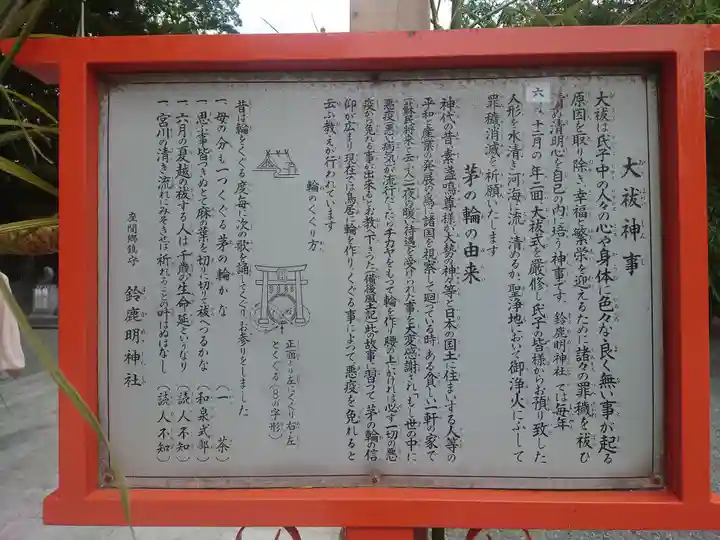 大祓神事
大祓は氏子中の人々の心や身体に色々な良く無い事が起る
原因を取り除き幸福な繁栄を迎えるために諸々の罪穢を祓ひ
清め清明心を自己の内に培う神事です。鈴鹿明神社では毎年
六月、十二月の年二回、大祓式を厳修し氏子の皆様からお預り致した
人形を水清き河海に流し清めるか、聖浄地において御浄火にふして
罪穢消滅を祈願いたします
茅の輪の由来
神代の昔、素盞鳴尊様が大勢の神々等と日本の国土に住まいする人等の
平和と産業の発展の為、諸国を視察して廻っている時、ある貧しい一軒の家で
(蘇民将来と云う人)一夜の暖い待遇を受けられた事を大変感謝され「もし世の中に
悪疫(悪い病気)が流行したらチガヤをもつて輪を作り腰の上にかければ必ず一切の悪
疫から免れる事が出来る」とお教へ下さった(備後風土記)此の故事に習って茅の輪の信
仰が広まり現在では鳥居に輪を作りくぐる事によって悪疫を免れると
云ふ教えが行われています
輪のくぐり方
正面より左にくぐり右、左
とくぐる(8の字形)
昔は輪をくぐる度毎に次の歌を誦してくぐりお参りをしました
一、母の分も一つくぐる茅の輪かな (一茶)
一、思ふ事皆つきねとて麻の葉を切りに切りて祓へつるかな (和泉式部)
一、六月の夏越の祓する人は千歳の生命延といふなり (読人不知)
一、宮川の清き流れにみそぎせば祈れることの叶はぬはなし (読人不知)
座間郷鎮守 鈴鹿明神社